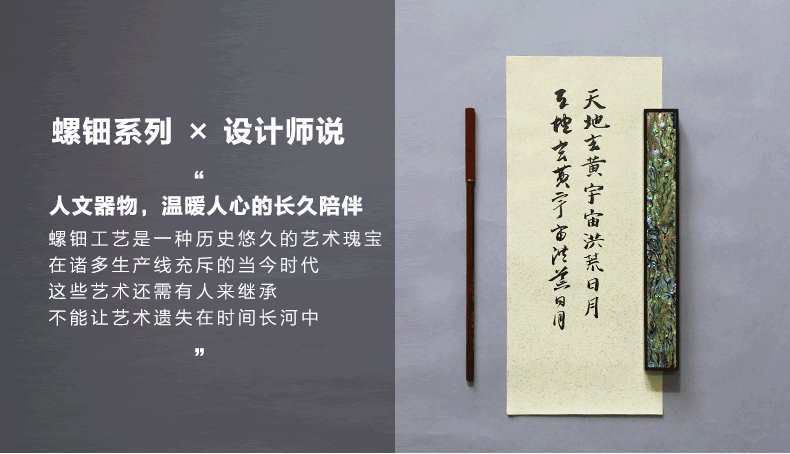 螺钿系列 × 设计师说
“
人文器物，温暖人心的长久陪伴
螺钿工艺是一种历史悠久的艺术瑰宝
在诸多生产线充斥的当今时代
这些艺术还需有人来继承
不能让艺术遗失在时间长河中
”
天地玄黄宇宙洪荒日月